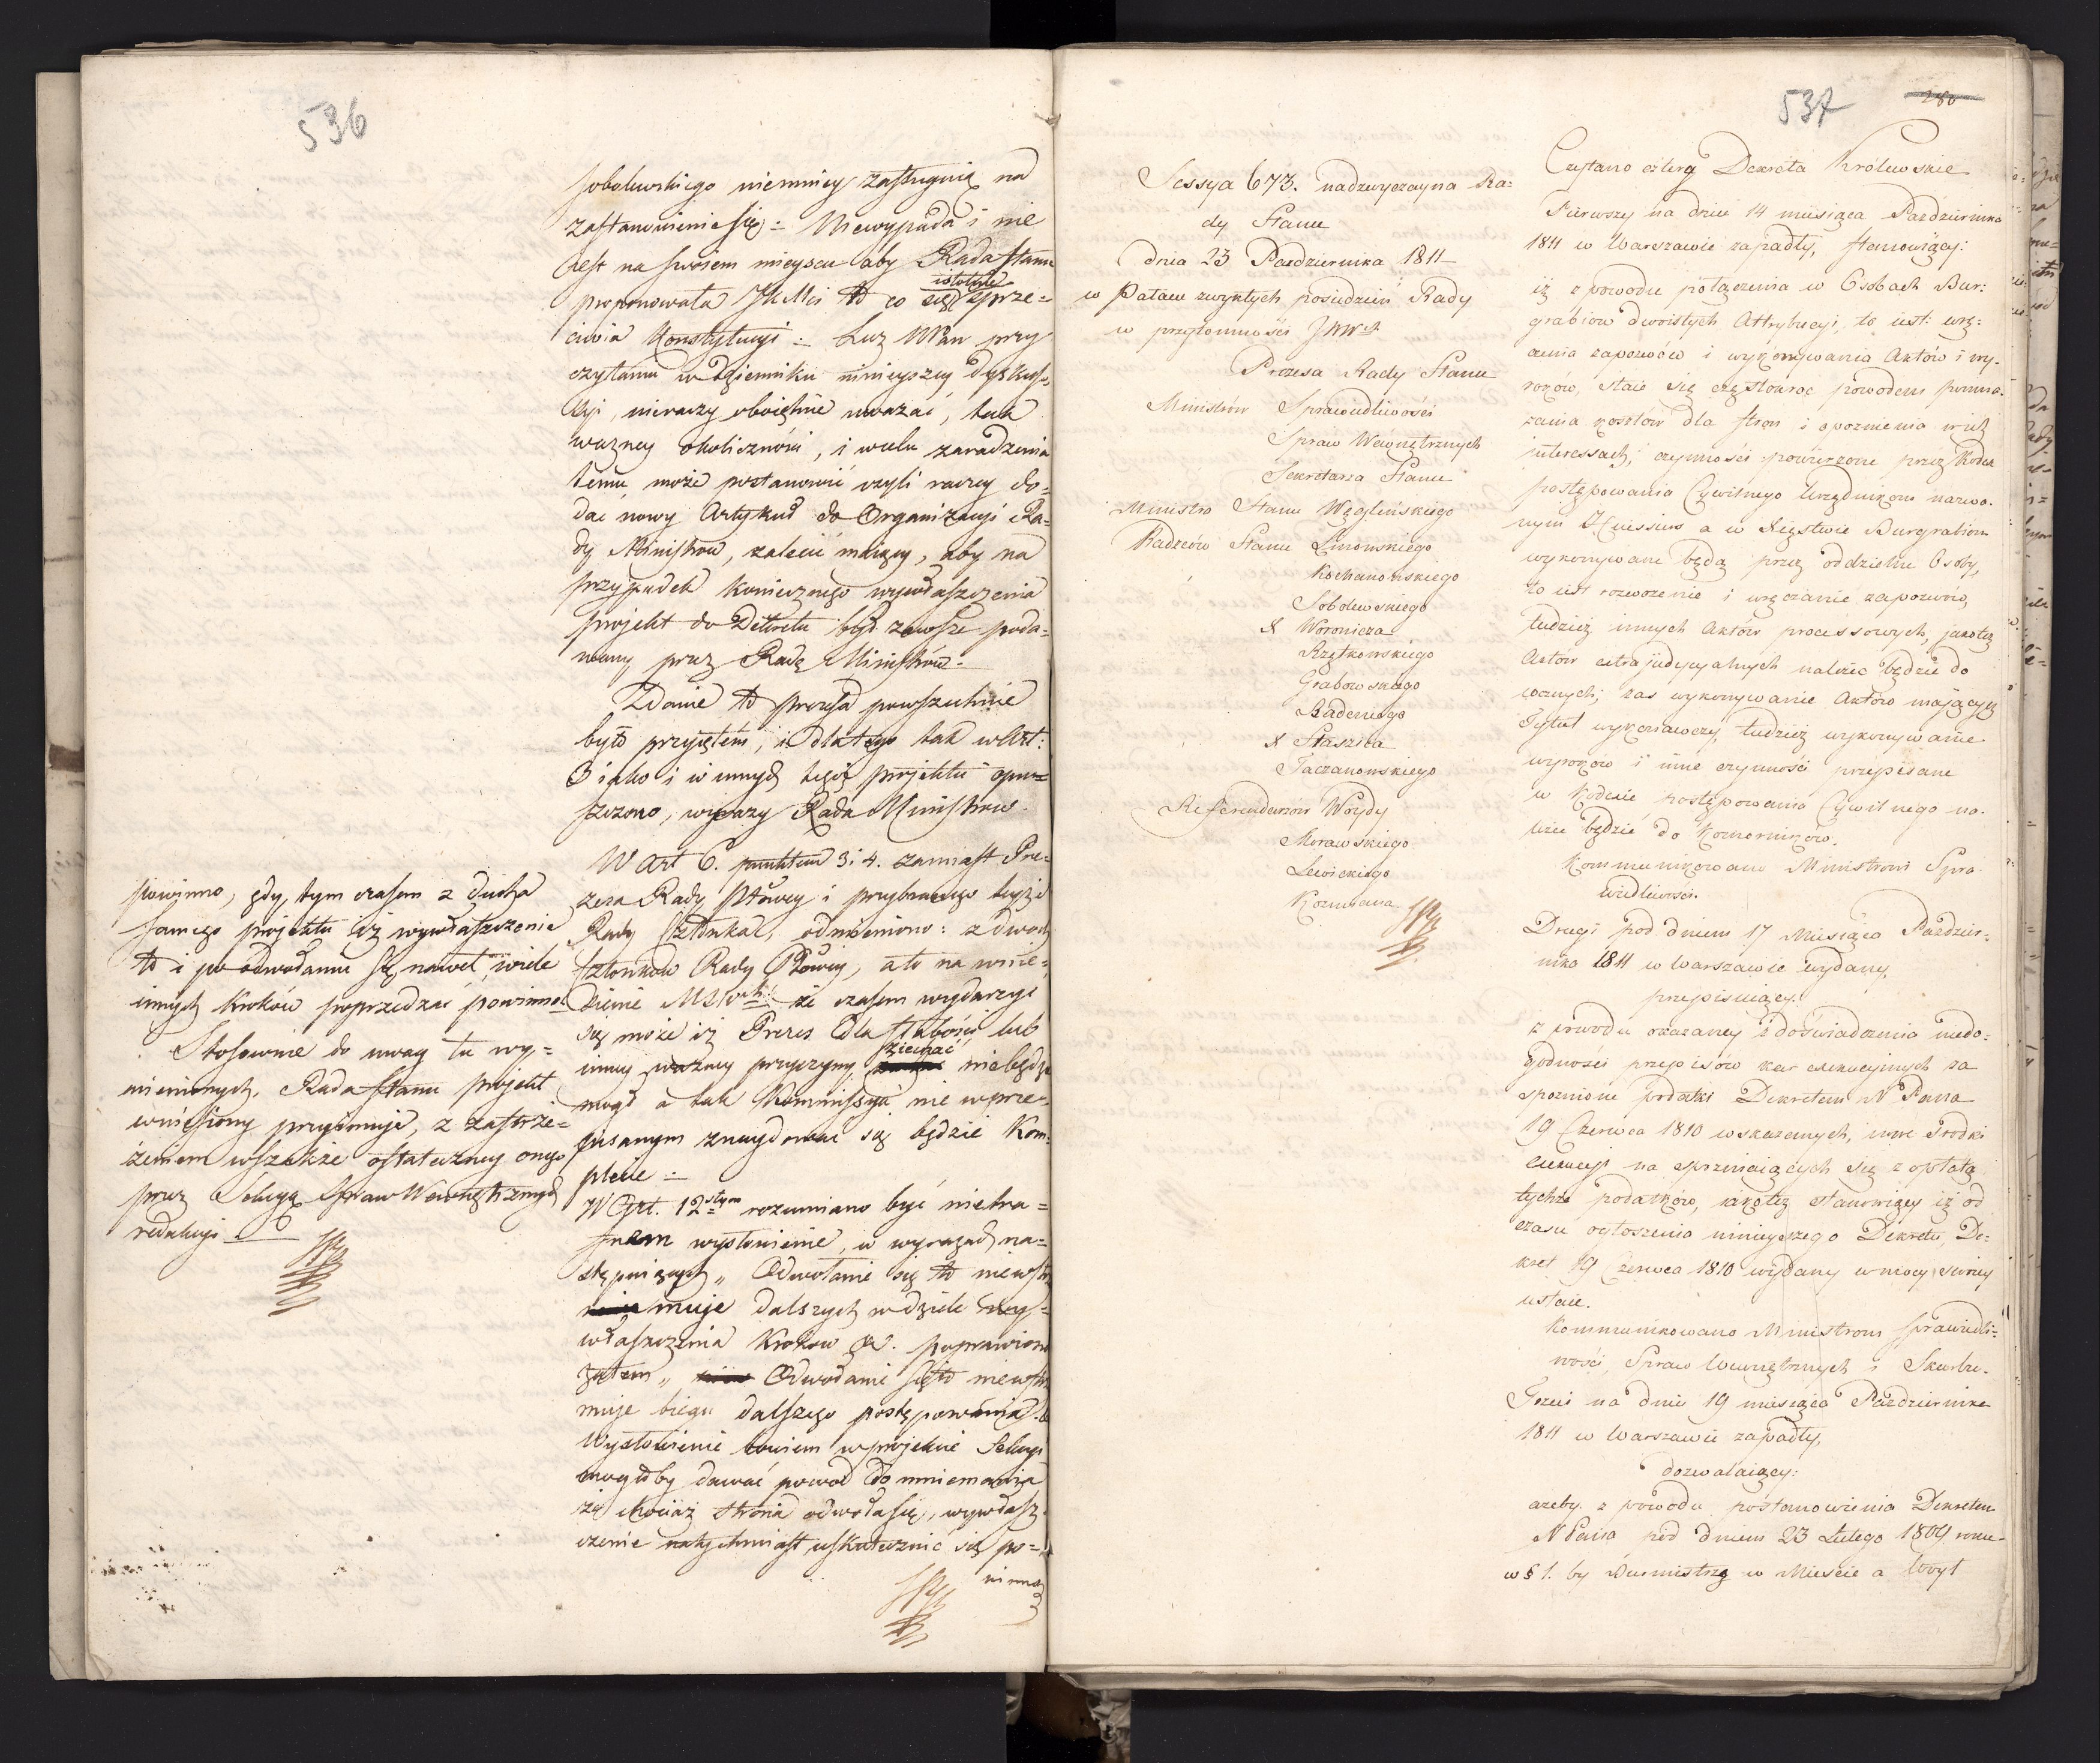 536
Sobolewskiego niemniey zasługuią na
zastanowienie się = Niewypada i nie
jest na swoiem mieyscu aby Rada Stanu
proponowała JKMci to co się istotnie sprze=
ciwia Konstytucyi = Lecz WPan przy
czytaniu w dzienniku ninieyszey dyskus=
syi, nieraczy oboiętnie uważać, tak
ważney okoliczności, i wcelu zaradzenia
temu może postanowić czyli raczey do=
dać nowy Artykuł do Organizacyi Ra=
dy Ministrów, zalecić maiący, aby na
przypadek koniecznego wywłaszczenia
projekt do Dekretu był zawsze poda=
wany przez Radę Ministrów. =
Zdanie to Prezesa powszechnie
było przyiętém, i dlatego tak w Art:
3 iako i w innych tegoż projektu opu=
szczono, wyrazy Rada Ministrów.
W Art 6. punktem 3 i 4. zamiast Pre=
zesa Rady Pttowey i przybranego teyże
Rady Członka, odmieniono: z dwóch
Członków Rady Pttowey, a to na wnie=
sienie MSWch: że czasem wydarzyć
się może iż Prezes dla słabości lub
inney ważney przyczyny ziechać niebędzie
mógł a tak Kommissya nie w prze=
pisanym znaydować się będzie Kom=
plecie =
W Art. 12stym rozumiano być nietra=
fnem wysłowienie, w wyrazach na=
stępuiących „ Odwołanie się to niewstrzy
muje dalszych w dziele wy=
właszczenia kroków &c. poprawiono
zatem „ Odwołanie się to niewstrzy
muje biegu dalszego postępowania. &
Wysłowienie bowiem w projekcie Sekcyi
mogłoby dawać powód do mniemania
że chociaż strona odwoła się, wywłasz
czenie natychmiast uskutecznić się po=
winno
powinno, gdy tym czasem z ducha
samego projektu iż wywłaszczenie
to i po odwołaniu się nawet, wiele
innych kroków poprzedzać powinno.
Stosownie do uwag tu wy=
mienionych, Rada Stanu projekt
wniesiony przyimuje, z zastrze=
żeniem wszakże ostateczney onego
przez Sekcyą Spraw Wewnętrznych
redakcyi
537
280
Sessya 673. nadzwyczayna Ra=
dy Stanu
dnia 23 Pazdziernika 1811
w Pałacu zwykłych posiedzeń Rady
w przytomności JWWch
Prezesa Rady Stanu
Ministrów Sprawiedliwości
Spraw Wewnętrznych
Sekretarza Stanu
Ministra Stanu Węgleńskiego
Radzców Stanu Linowskiego
Kochanowskiego
Sobolewskiego
X Woronicza
Rzętkowskiego
Grabowskiego
Badeniego
X Staszica
Taczanowskiego
Referendarzów Woydy
Morawskiego
Lewickiego
Kozmiana
Czytano cztery Dekreta Królewskie
Pierwszy na dniu 14 miesiąca Pazdziernika
1811 w Warszawie zapadły, stanowiący:
iż z powodu połączenia w Osobach Bur:
grabiów dwoistych Attrybucyi, to iest: wrę:
czenia zapozwów i wykonywania Aktów i wy-
roków, staie się częstokroć powodem pomna-
żania kosztów dla stron i opoznienia w ich
interessach; czynności powierzone przez Kodex
postępowania Cywilnego Urzędnikom nazwa-
nym Huissiers a w Xięstwie Burgrabiom
wykonywane będą przez oddzielne Osoby,
to iest rozwożenie i wręczanie zapozwów,
tudzież innych Aktów processowych, jakoteż
Aktów extrajudycyalnych należeć będzie do
woznych; zaś wykonywanie Aktów mających
Tytuł wykonawczy, tudzież wykonywanie
wyroków i inne czynności przepisane
w Kodexie postępowania Cywilnego na-
leżeć będzie do Komorników.
Kommunikowano Ministrowi Spra-
wiedliwości.
Drugi pod dniem 17 Miesiąca Pazdzier-
nika 1811 w Warszawie wydany,
przepisuiący.
z powodu okazaney z doświadczenia niedo-
godności przepisów kar exekucyinych za
spoznione podatki Dekretem N Pana
19 Czerwca 1810 wskazanych, inne środki
exekucyi na opozniaiących się z opłatą
tychże podatków, iakoteż stanowiący iż od
czasu ogłoszenia ninieyszego Dekretu, De-
kret 19 Czerwca 1810 wydany w mocy swoiey
ustaie.
Kommunikowano Ministrom Sprawiedli=
wości, Spraw Wewnętrznych i Skarbu.
Trzeci na dniu 19 miesiąca Pazdziernika
1811 w Warszawie zapadły,
dozwalaiący:
ażeby z powodu postanowienia Dekretem
N Pana pod dniem 23 Lutego 1809 roku
w § 1. by Burmistrz w Mieście a Woyt